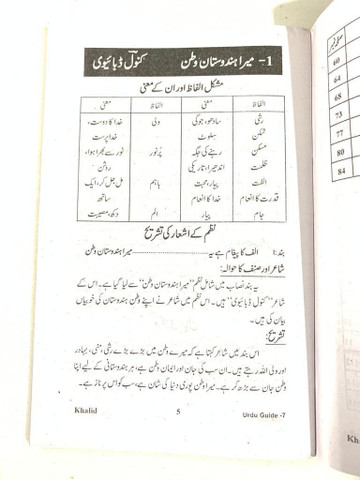 1- میرا ہندوستان وطن کنول ڈبائیوی
مشکل الفاظ اور ان کے معنی
الفاظ معنی الفاظ معنی
رشی سادھو، جوگی ولی خدا کا دوست،
شکن سلوٹ خدا پرست
مسکن رہنے کی جگہ پُرنور نور سے بھرا ہوا،
ظلمت اندھیرا، تاریکی روشن
الفت پیار، محبت باہم مل جل کر، ایک
قدرت کا انعام خدا کا انعام ساتھ
جام پیار الم دکھ، مصیبت
نظم کے اشعار کی تشریح
بند:1 الف کا پیغام ہے یہ ........................ میرا ہندوستان وطن
شاعر اور صنف کا حوالہ:
یہ بند نصاب میں شامل نظم "میرا ہندوستان وطن" سے لیا گیا ہے۔ اس کے
شاعر "کنول ڈبائیوی" ہیں۔ اس نظم میں شاعر نے اپنے وطن ہندوستان کی خوبیاں
بیان کی ہیں۔
تشریح:
اس بند میں شاعر کہتا ہے کہ میرے وطن میں بڑے بڑے رشی، منی، بہادر
اور ولی اللہ رہتے ہیں۔ ان سب کی جان اور ایمان وطن ہے، ہر ہندوستانی کے لیے اپنا
وطن جان سے بڑھ کر ہے۔ میرا وطن پوری دنیا کی شان ہے، سب کو اس پر ناز ہے۔
Khalid 5 Urdu Guide -7
صفحہ نمبر
60
64
68
73
77
80
84
Kha